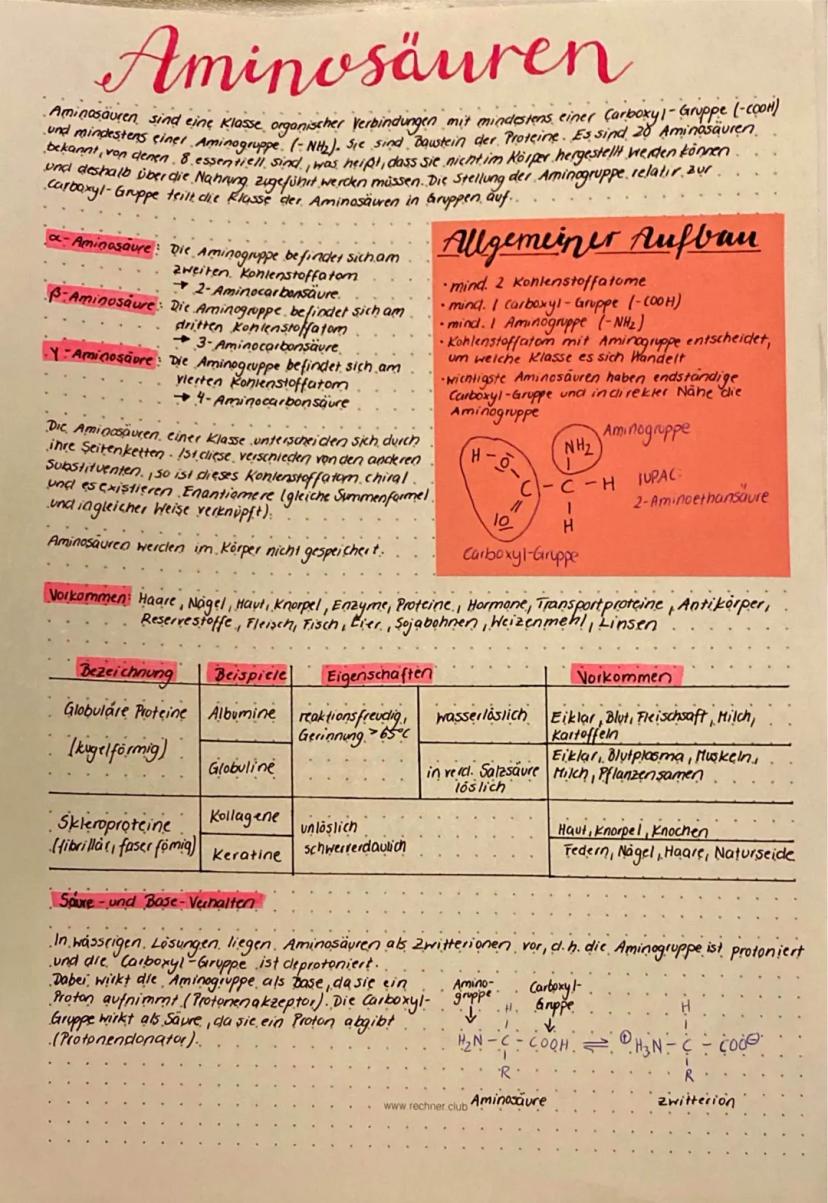 Aminosäuren
Aminosäuren sind eine Klasse organischer Verbindungen mit mindestens einer Carboxyl-Gruppe (-COOH)
und mindestens einer Aminogruppe (-NH₂). Sie sind Baustein der Proteine. Es sind 20 Aminosäuren
bekannt, von denen 8 essentiell sind, was heißt, dass sie nicht im Körper hergestellt werden können
und deshalb über die Nahrung zugeführt werden müssen. Die Stellung der Aminogruppe relativ zur
Carboxyl-Gruppe teilt die Klasse der Aminosäuren in Gruppen auf.
α-Aminosäure: Die Aminogruppe befindet sich am
zweiten Kohlenstoffatom
→ 2-Aminocarbonsäure
β-Aminosäure: Die Aminogruppe befindet sich am
dritten Kohlenstoffatom
→ 3-Aminocarbonsäure
γ-Aminosäure: Die Aminogruppe befindet sich am
vierten Kohlenstoffatom
→ 4-Aminocarbonsäure
Die Aminosäuren einer Klasse unterscheiden sich durch
ihre Seitenketten. Ist diese verschieden von den anderen
Substituenten, so ist dieses Kohlenstoffatom chiral
und es existieren Enantiomere (gleiche Summenformel
und in gleicher Weise verknüpft).
Aminosäuren werden im Körper nicht gespeichert.
Allgemeiner Aufbau
• mind. 2 Kohlenstoffatome
• mind. 1 Carboxyl-Gruppe (-COOH)
• mind. 1 Aminogruppe (-NH₂)
• Kohlenstoffatom mit Aminogruppe entscheidet,
um welche Klasse es sich handelt
• wichtigste Aminosäuren haben endständige
Carboxyl-Gruppe und in direkter Nähe die
Aminogruppe
Aminogruppe
NH₂
H - O
C - C - H
O
H
IUPAC:
2-Aminoethansäure
Carboxyl-Gruppe
Vorkommen: Haare, Nägel, Haut, Knorpel, Enzyme, Proteine, Hormone, Transportproteine, Antikörper,
Reservestoffe, Fleisch, Fisch, Eier, Sojabohnen, Weizenmehl, Linsen
Bezeichnung Beispiele Eigenschaften Vorkommen
Globuläre Proteine Albumine reaktionsfreudig, wasserlöslich Eiklar, Blut, Fleischsaft, Milch,
Gerinnung >65°C Kartoffeln
(kugelförmig) Globuline in verd. Salzsäure Eiklar, Blutplasma, Muskeln,
löslich Milch, Pflanzensamen
Skleroproteine Kollagene unlöslich Haut, Knorpel, Knochen
(fibrillär, faserförmig) Keratine schwerverdaulich Federn, Nägel, Haare, Naturseide
Säure- und Base-Verhalten
In wässrigen Lösungen liegen Aminosäuren als Zwitterionen vor, d.h. die Aminogruppe ist protoniert
und die Carboxyl-Gruppe ist deprotoniert.
Dabei wirkt die Aminogruppe als Base, da sie ein
Proton aufnimmt (Protonenakzeptor). Die Carboxyl-
Gruppe wirkt als Säure, da sie ein Proton abgibt
(Protonendonator).
Amino-
gruppe
Carboxyl-
Gruppe
H H
H₂N - C - COOH ⇌ ⊕H₃N - C - COO⊖
R R
Aminosäure Zwitterion
www.rechner.club